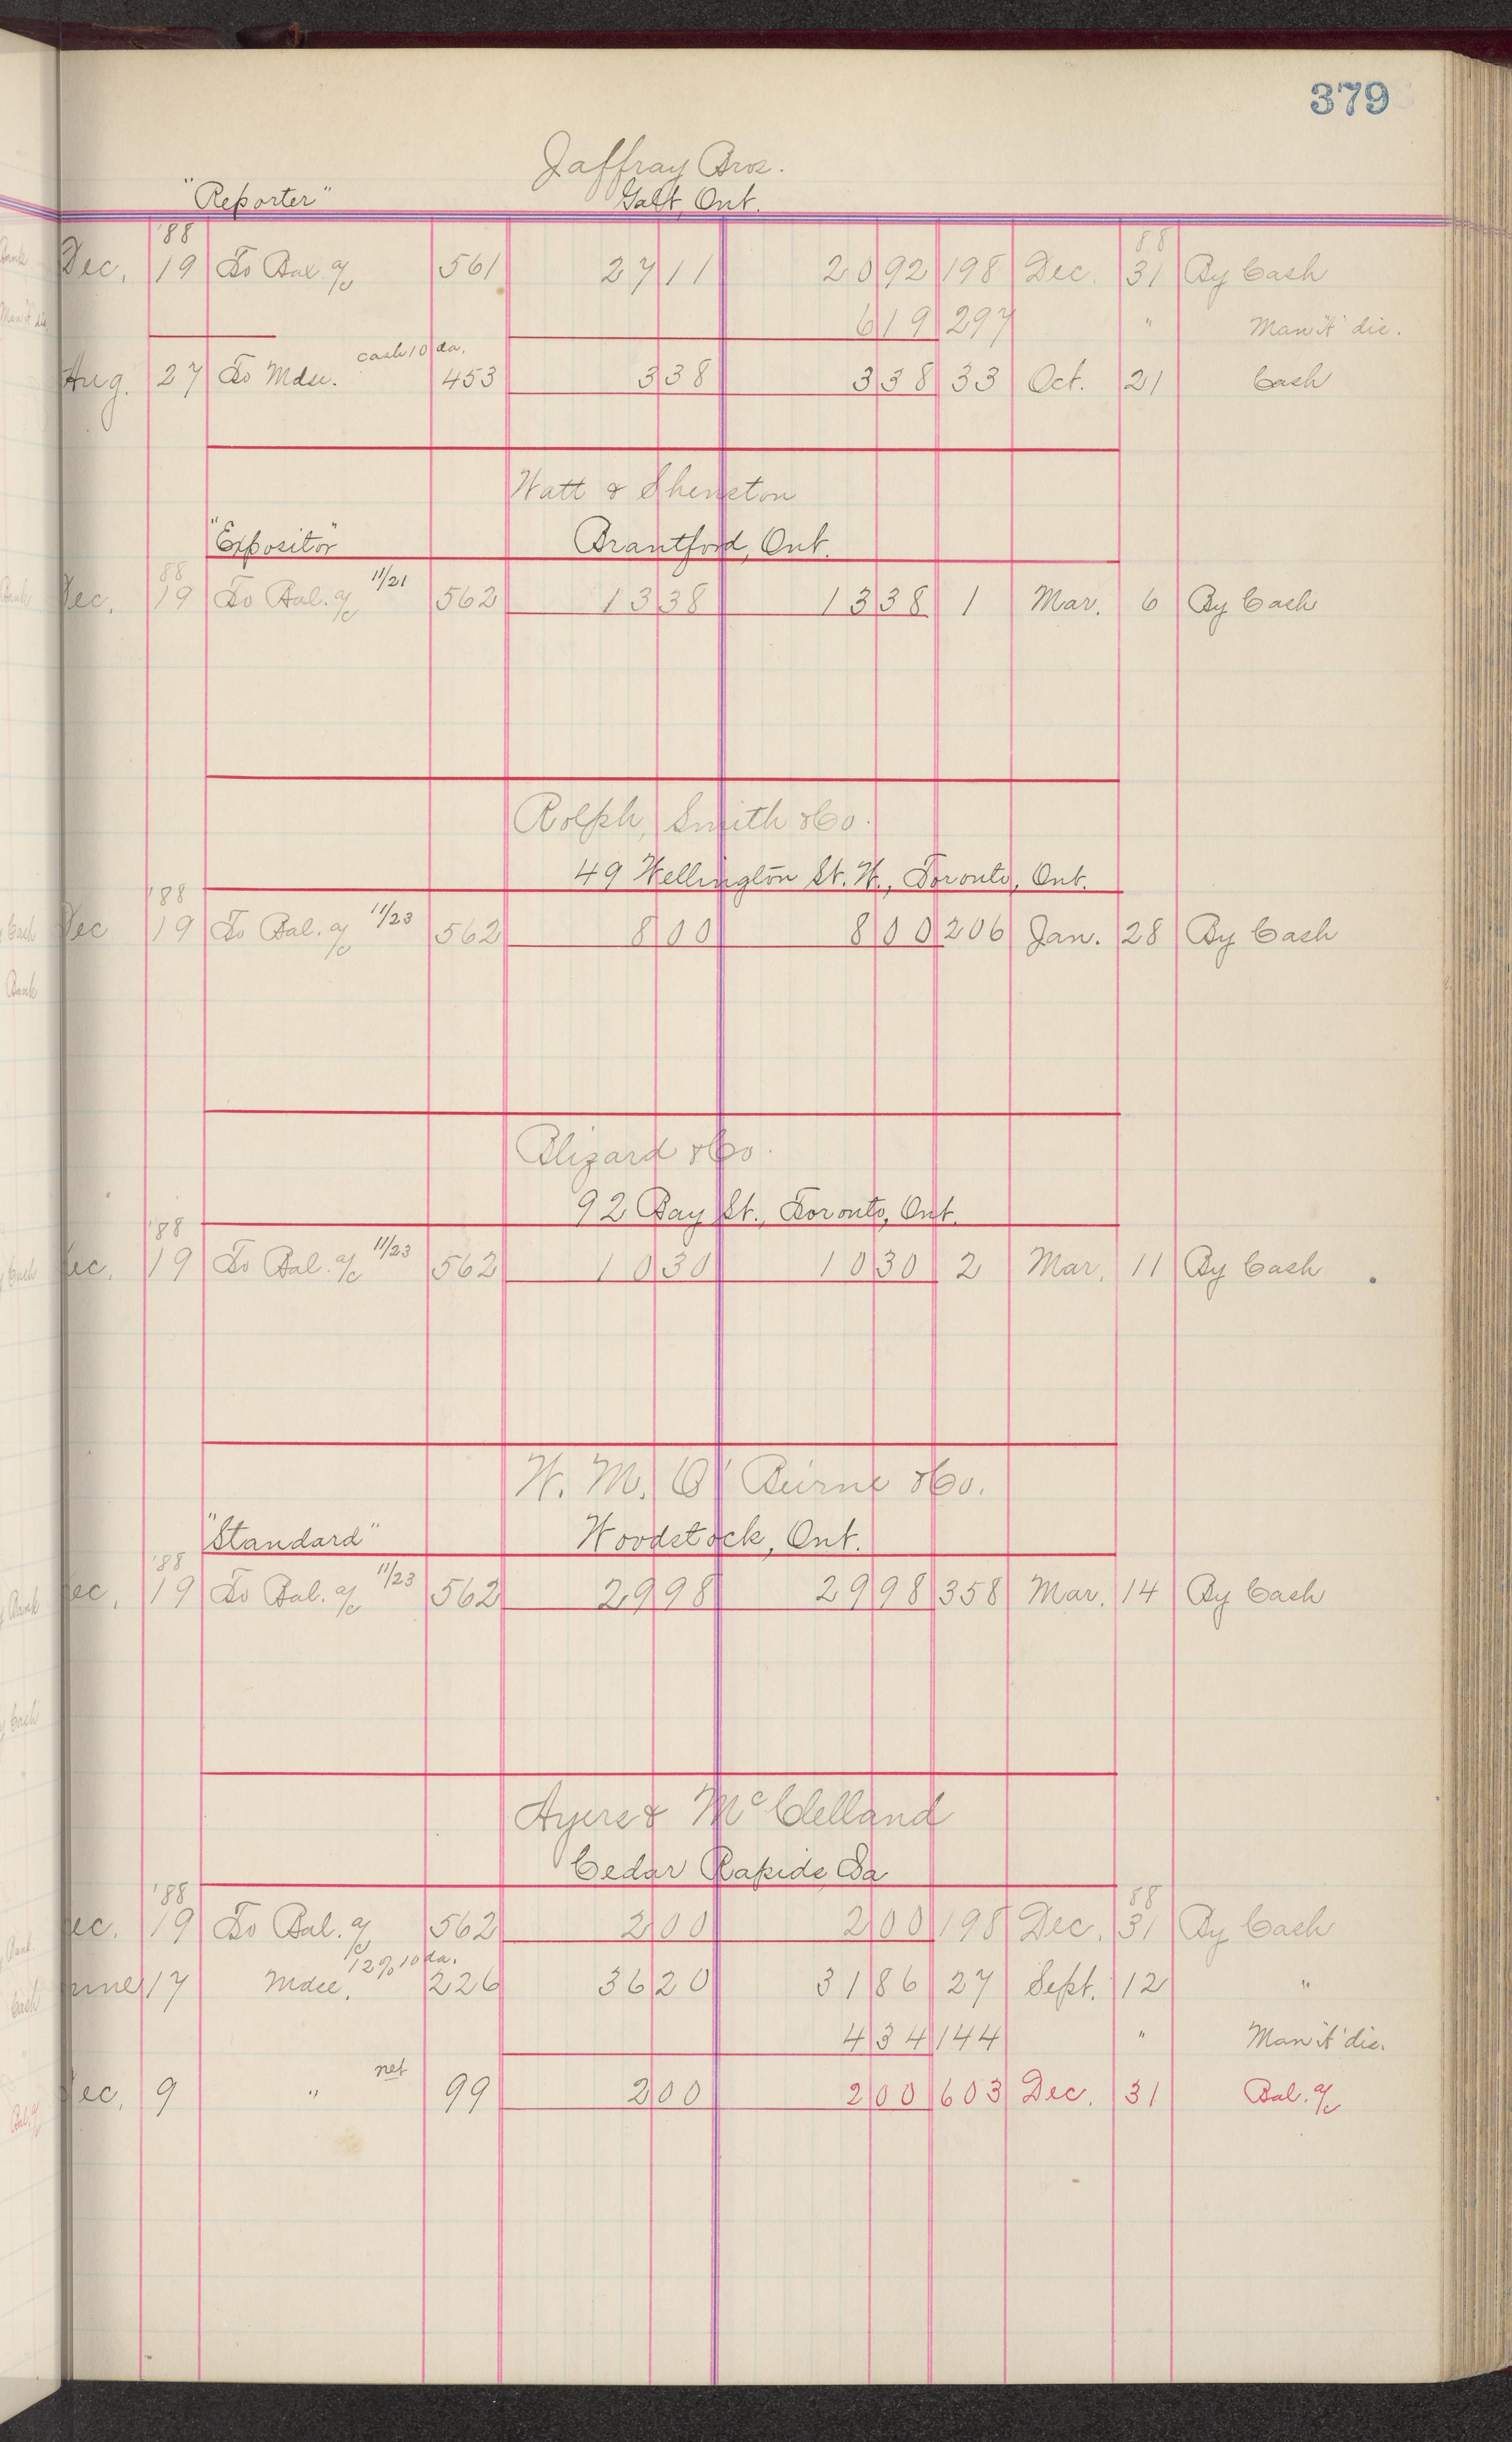 379
Jaffray Bros.
"Reporter" Galt, Ont.
'88 88
Dec. 19 To Bal a/c 561 27 11 20 92 198 Dec. 31 By Cash
6 19 297 " Man'f'r dis.
cash 10 da.
Aug. 27 To Mdse. 453 3 38 3 38 33 Oct. 21 Cash
Watt & Shenston
"Expositor" Brantford, Ont.
88
Dec. 19 To Bal. a/c 11/21 562 13 38 13 38 1 Mar. 6 By Cash
Rolph, Smith & Co.
49 Wellington St. W., Toronto, Ont.
'88
Dec 19 To Bal. a/c 11/23 562 8 00 8 00 206 Jan. 28 By Cash
Blizard & Co.
92 Bay St., Toronto, Ont.
'88
Dec. 19 To Bal. a/c 11/23 562 10 30 10 30 2 Mar. 11 By Cash
W. M. O'Beirne & Co.
"Standard" Woodstock, Ont.
'88
Dec. 19 To Bal. a/c 11/23 562 29 98 29 98 358 Mar. 14 By Cash
Ayers & McClelland
Cedar Rapids Ia
'88 88
Dec. 19 To Bal. a/c 562 2 00 2 00 198 Dec. 31 By Cash
12% 10 da.
June 17 Mdse. 226 36 20 31 86 27 Sept. 12 "
4 34 144 " Man'f'r dis.
net
Dec. 9 " 99 2 00 2 00 603 Dec. 31 Bal. a/c